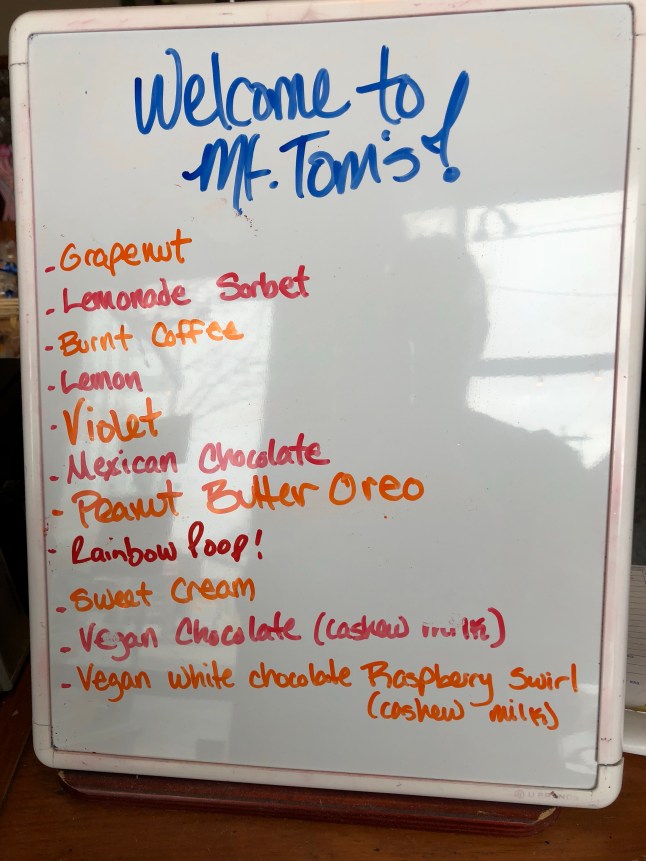 Welcome to
Mt. Tom's!
- Grapenut
- Lemonade Sorbet
- Burnt Coffee
- Lemon
- Violet
- Mexican Chocolate
- Peanut Butter Oreo
- Rainbow Poop!
- Sweet Cream
- Vegan Chocolate (cashew milk)
- Vegan white chocolate Raspberry Swirl
(cashew milk)